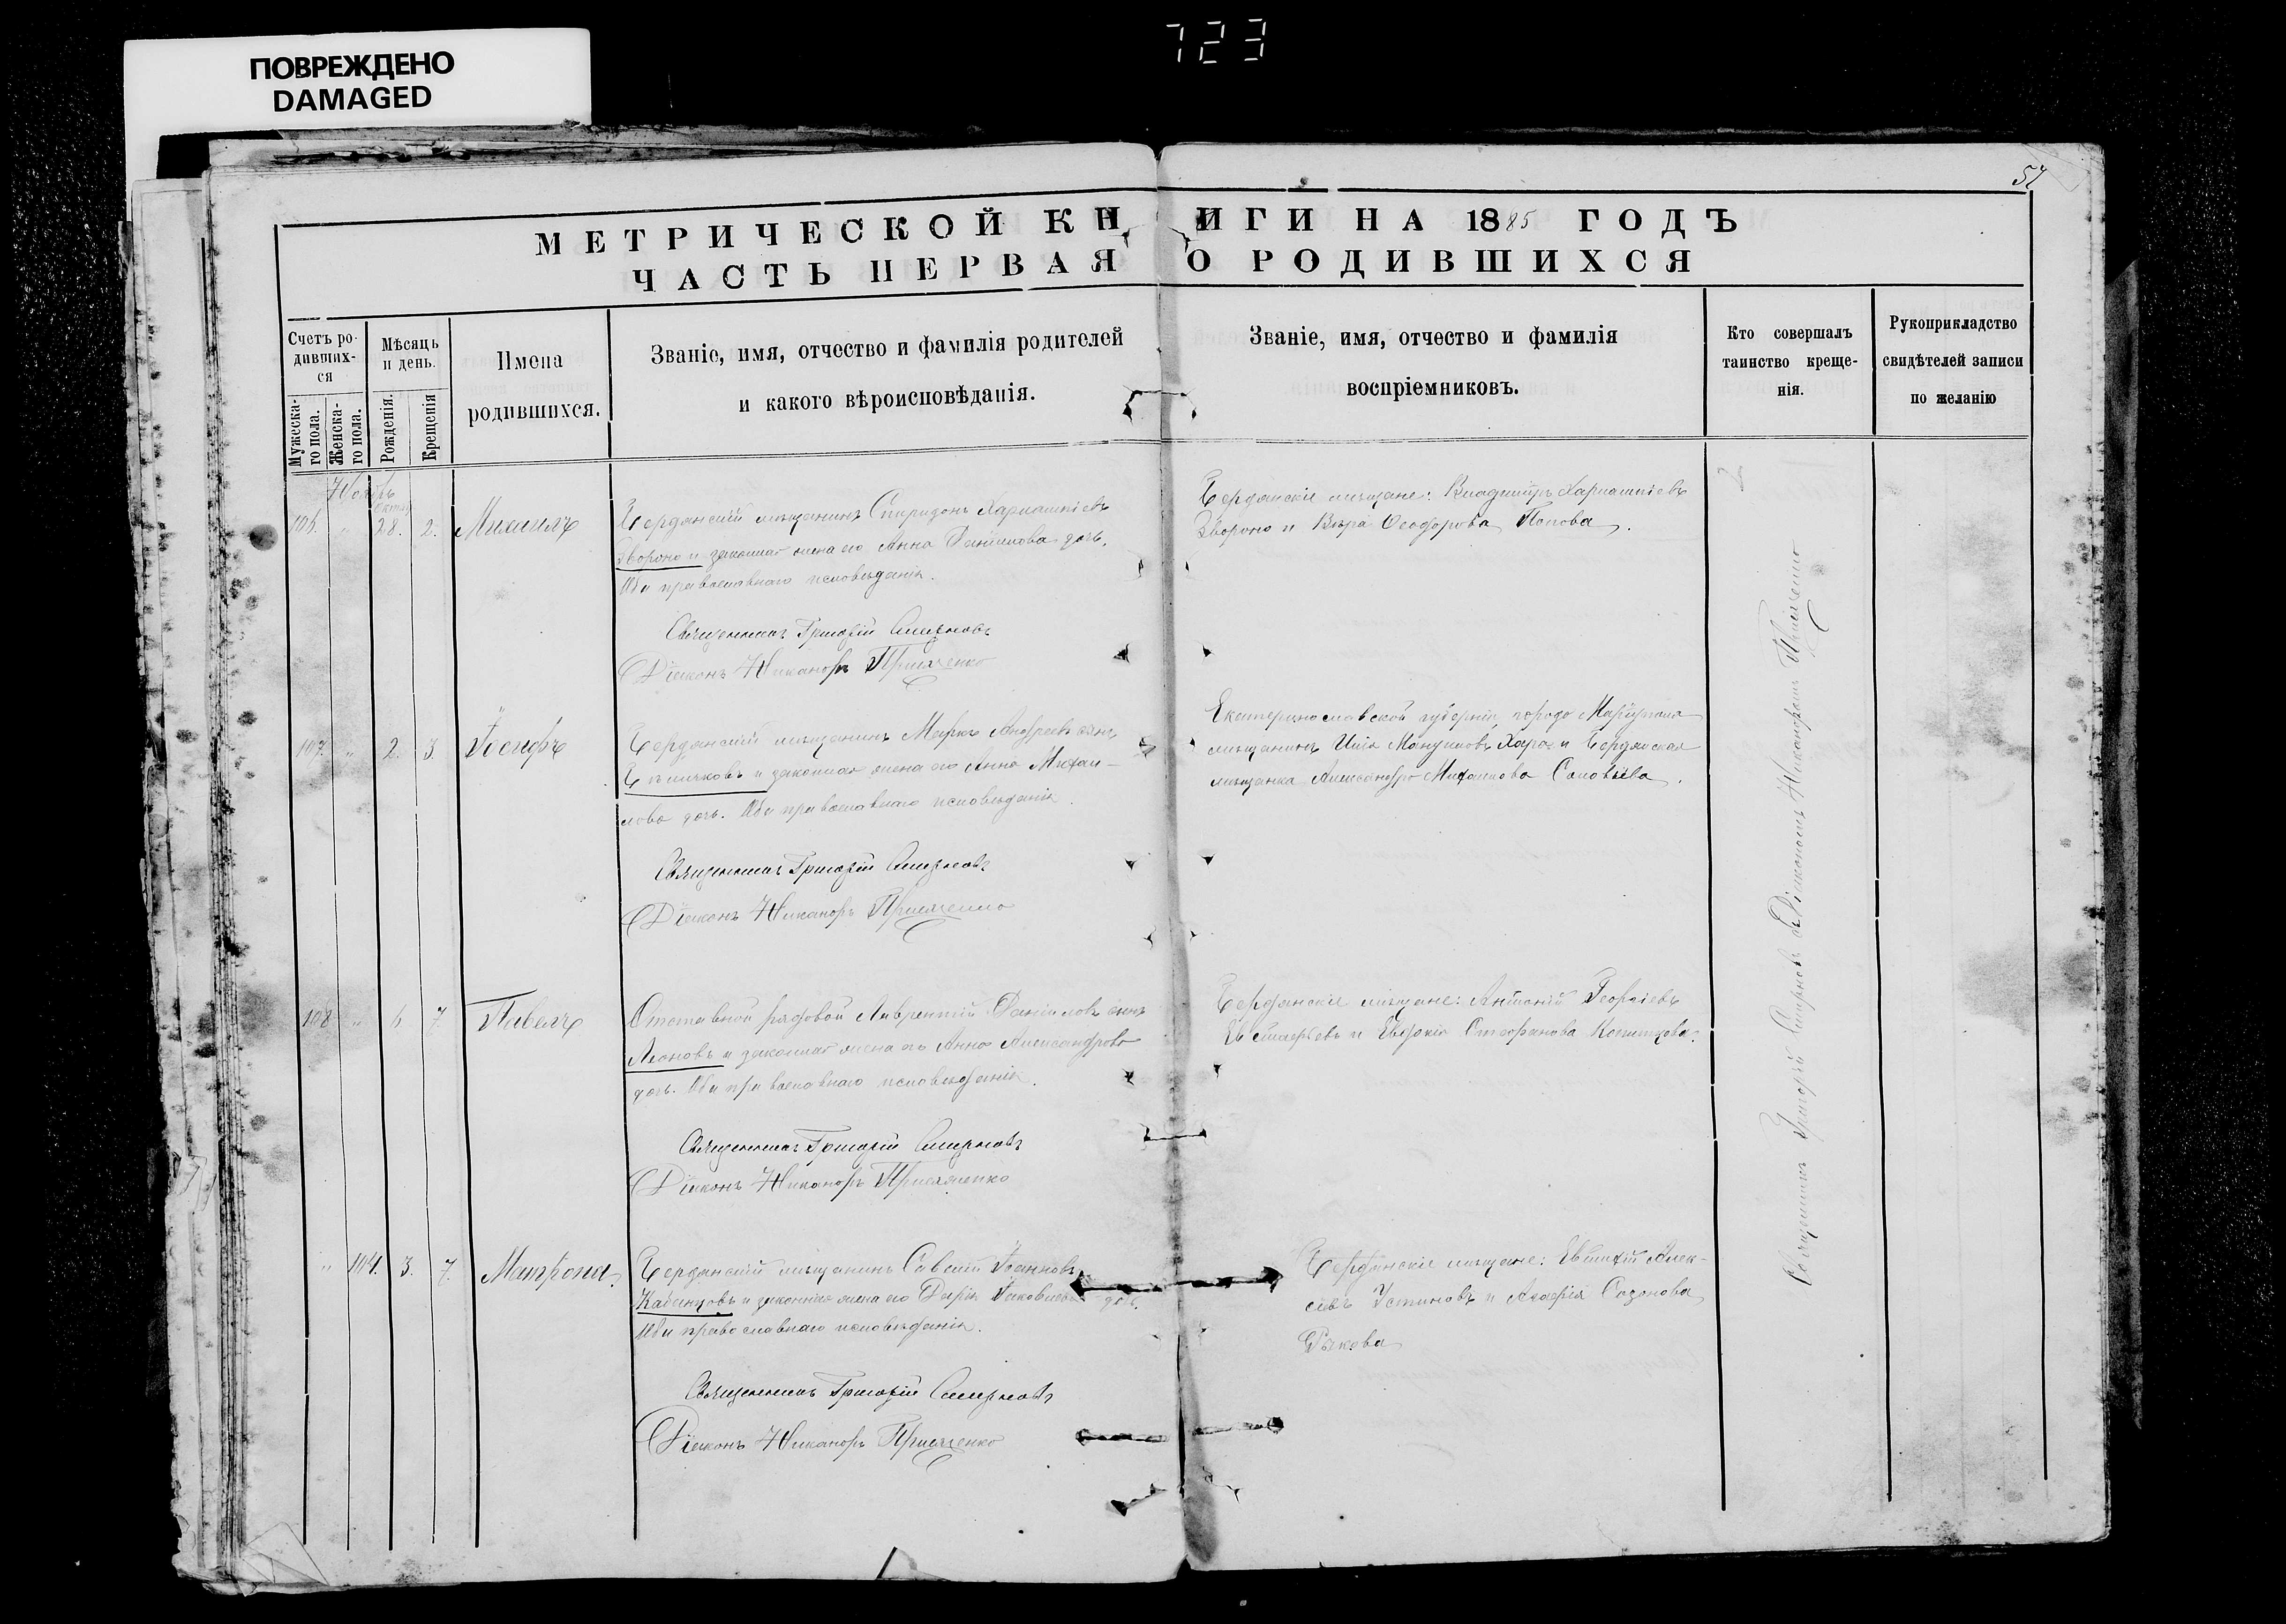 723
ПОВРЕЖДЕНО
DAMAGED
57
МЕТРИЧЕСКОЙ КНИГИ НА 1885 ГОДЪ
ЧАСТЬ ПЕРВАЯ О РОДИВШИХСЯ
Счетъ ро-
дивших-
ся
Мужеска-
го пола.
Женска-
го пола.
Мѣсяцъ
и день.
Рожденія.
Крещенія
Имена
родившихся.
Званіе, имя, отчество и фамилія родителей
и какого вѣроисповѣданія.
Званіе, имя, отчество и фамилія
воспріемниковъ.
Кто совершалъ
таинство креще-
нія.
Рукоприкладство
свидѣтелей записи
по желанію
Ноябрь
106. " 28. 2. Михаилъ
Бердянскій мѣщанинъ Спиридонъ Харлампіевъ
Звороно и законная жена его Анна Даніилова дочь.
Оба православнаго исповѣданія.
Священникъ Григорій Смирновъ
Діаконъ Никаноръ
Бердянскіе мѣщане: Владиміръ Харлампіевъ
Звороно и Вѣра Ѳеодорова Попова.
107. " 2. 3. Іосифъ
Бердянскій мѣщанинъ Маркъ Андреевъ сынъ
и законная жена его Анна Михаи-
лова дочь. Оба православнаго исповѣданія.
Священникъ Григорій Смирновъ
Діаконъ Никаноръ
Екатеринославской губерніи, города Маріуполя
мѣщанинъ Илія Мануиловъ Хара и Бердянская
мѣщанка Александра Михаилова Соловьева.
108 " 6 7 Павелъ
Отставной рядовой Лаврентій Даніиловъ сынъ
Леоновъ и законная жена его Анна Александрова
дочь. Оба православнаго исповѣданія.
Священникъ Григорій Смирновъ
Діаконъ Никаноръ
Бердянскіе мѣщане: Антоній Георгіевъ
Евстафьевъ и Евдокія Стефанова
" 104. 3. 7. Матрона
Бердянскій мѣщанинъ Савелій Іоанновъ
и законная жена его Дарія Іаковлева дочь.
Оба православнаго исповѣданія.
Священникъ Григорій Смирновъ
Діаконъ Никаноръ
Бердянскіе мѣщане: Евтихій Алек-
сѣевъ Устиновъ и Агафія Созонова
Рыкова
Священникъ Григорій Смирновъ съ Діакономъ Никаноромъ